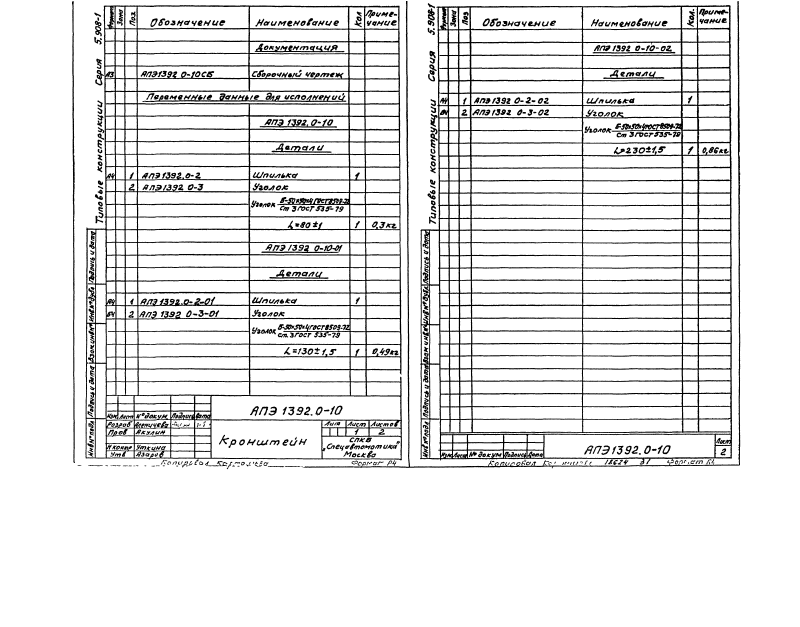 Типовые конструкции Серия 5.908-1
Формат Зона Поз. Обозначение Наименование Кол Приме-чание
Документация
А3 АПЭ1392 0-10СБ Сборочный чертеж
Переменные данные для исполнений
АПЭ 1392.0-10
Детали
А4 1 АПЭ1392.0-2 Шпилька 1
2 АПЭ1392 0-3 Уголок
Уголок Б-50х50х4 ГОСТ 8509-72
Ст 3 ГОСТ 535-79
L=80±1 1 0,3кг
АПЭ 1392 0-10-01
Детали
А4 1 АПЭ 1392.0-2-01 Шпилька 1
Б4 2 АПЭ 1392 0-3-01 Уголок
Уголок Б-50х50х4 ГОСТ 8509-72
Ст. 3 ГОСТ 535-79
L=130±1,5 1 0,49кг
Инв № подл Подпись и дата Взам инв № Инв № дубл Подпись и дата
АПЭ 1392.0-10
Изм. Лист № докум. Подпись Дата
Разраб
Пров Акулин
Н контр Уткина
Утв Азаров
Кронштейн
Лит Лист Листов
1 2
СПКБ
"Спецавтоматика"
Москва
Копировал Формат А4
Типовые конструкции Серия 5.908-1
Формат Зона Поз Обозначение Наименование Кол. Приме-чание
АПЭ1392 0-10-02
Детали
А4 1 АПЭ1392 0-2-02 Шпилька 1
Б4 2 АПЭ1392 0-3-02 Уголок
Уголок Б-50х50х4 ГОСТ 8509-72
Ст 3 ГОСТ 535-79
L=230±1,5 1 0,86кг
Инв № подл Подпись и дата Взам инв № Инв № дубл Подпись и дата
Изм. Лист № докум Подпись Дата
АПЭ1392.0-10
Лист
2
Копировал Формат А4